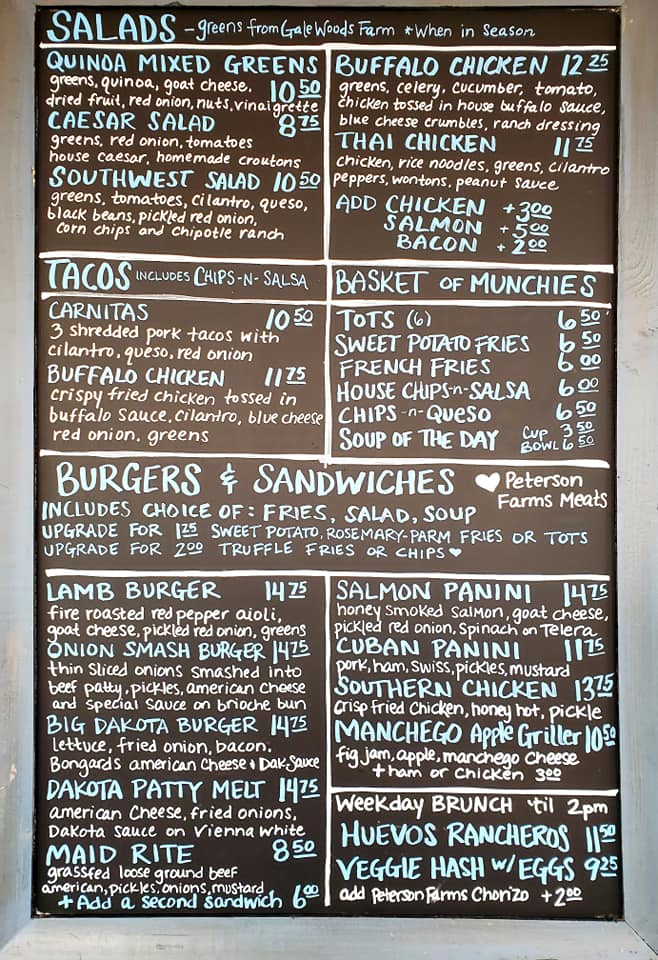 SALADS - greens from Gale Woods Farm *When in Season
QUINOA MIXED GREENS
greens, quinoa, goat cheese, 10 50
dried fruit, red onion, nuts, vinaigrette
CAESAR SALAD 8 75
greens, red onion, tomatoes
house caesar, homemade croutons
SOUTHWEST SALAD 10 50
greens, tomatoes, cilantro, queso,
black beans, pickled red onion,
corn chips and chipotle ranch
BUFFALO CHICKEN 12 25
greens, celery, cucumber, tomato,
chicken tossed in house buffalo sauce,
blue cheese crumbles, ranch dressing
THAI CHICKEN 11 75
chicken, rice noodles, greens, cilantro
peppers, wontons, peanut sauce
ADD CHICKEN +3 00
SALMON +5 00
BACON +2 00
TACOS INCLUDES CHIPS-N-SALSA
CARNITAS 10 50
3 shredded pork tacos with
cilantro, queso, red onion
BUFFALO CHICKEN 11 75
crispy fried chicken tossed in
buffalo sauce, cilantro, blue cheese
red onion, greens
BASKET OF MUNCHIES
TOTS (6) 6 50
SWEET POTATO FRIES 6 50
FRENCH FRIES 6 00
HOUSE CHIPS-n-SALSA 6 00
CHIPS-n-QUESO 6 50
SOUP OF THE DAY CUP 3 50
BOWL 6 50
BURGERS & SANDWICHES ♥ Peterson
Farms Meats
INCLUDES CHOICE OF: FRIES, SALAD, SOUP
UPGRADE FOR 1 25 SWEET POTATO, ROSEMARY-PARM FRIES OR TOTS
UPGRADE FOR 2 00 TRUFFLE FRIES OR CHIPS ♥
LAMB BURGER 14 75
fire roasted red pepper aioli,
goat cheese, pickled red onion, greens
ONION SMASH BURGER 14 75
thin sliced onions smashed into
beef patty, pickles, american cheese
and special sauce on brioche bun
BIG DAKOTA BURGER 14 75
lettuce, fried onion, bacon,
Bongards american cheese + Dak Sauce
DAKOTA PATTY MELT 14 75
american cheese, fried onions,
Dakota sauce on Vienna white
MAID RITE 8 50
grassfed loose ground beef
american, pickles, onions, mustard
+ Add a second sandwich 6 00
SALMON PANINI 14 75
honey smoked salmon, goat cheese,
pickled red onion, spinach on Telera
CUBAN PANINI 11 75
pork, ham, swiss, pickles, mustard
SOUTHERN CHICKEN 13 75
crisp fried chicken, honey hot, pickle
MANCHEGO Apple Griller 10 50
fig jam, apple, manchego cheese
+ ham or chicken 3 00
Weekday BRUNCH 'til 2pm
HUEVOS RANCHEROS 11 50
VEGGIE HASH w/ EGGS 9 25
add Peterson Farms Chorizo +2 00